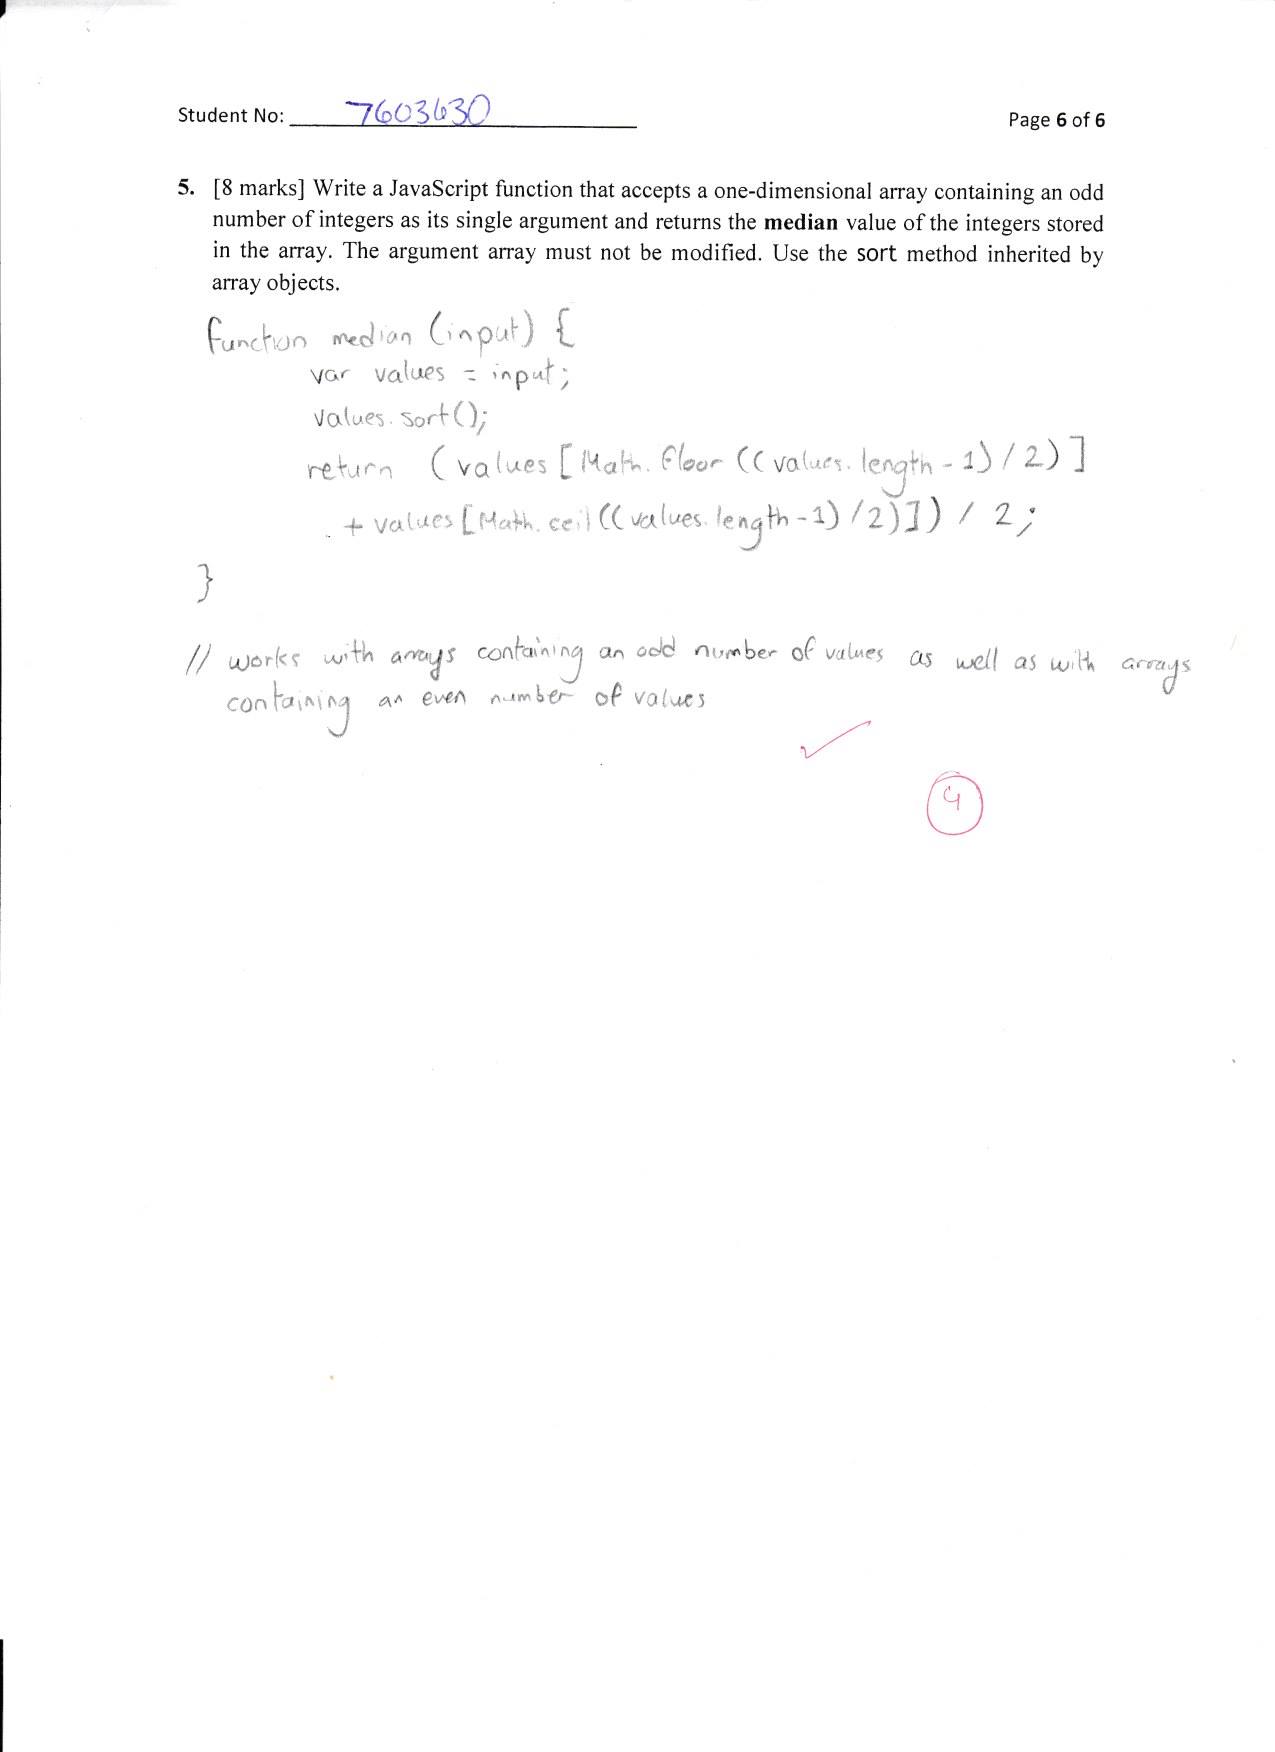 Student No: 7603630
Page 6 of 6
5. [8 marks] Write a JavaScript function that accepts a one-dimensional array containing an odd
number of integers as its single argument and returns the median value of the integers stored
in the array. The argument array must not be modified. Use the sort method inherited by
array objects.
function median (input) {
var values = input;
values.sort();
return (values [Math.floor ((values.length - 1) / 2)]
+ values [Math.ceil ((values.length - 1) / 2)]) / 2;
}
// works with arrays containing an odd number of values as well as with arrays
containing an even number of values
4